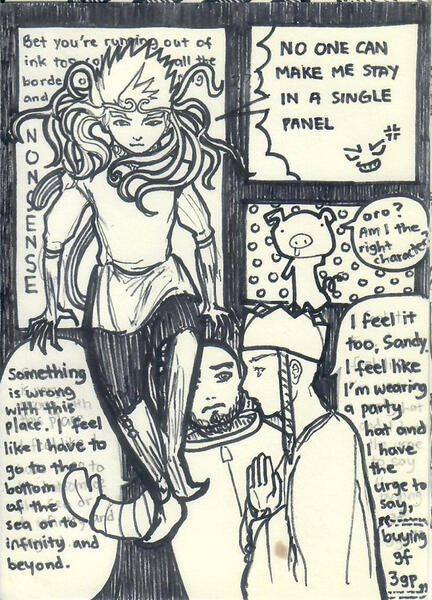 Bet you're running out of
ink too
all the
borde
and
NONSENSE
NO ONE CAN
MAKE ME STAY
IN A SINGLE
PANEL
oro?
Am I the
right
character?
Something
is wrong
with this
place. I feel
like I have to
go to the
bottom
of the
sea or to
infinity and
beyond.
I feel it
too, Sandy.
I feel like
I'm wearing
a party
hat and
I have
the
urge to
say,
buying
gf
3gp